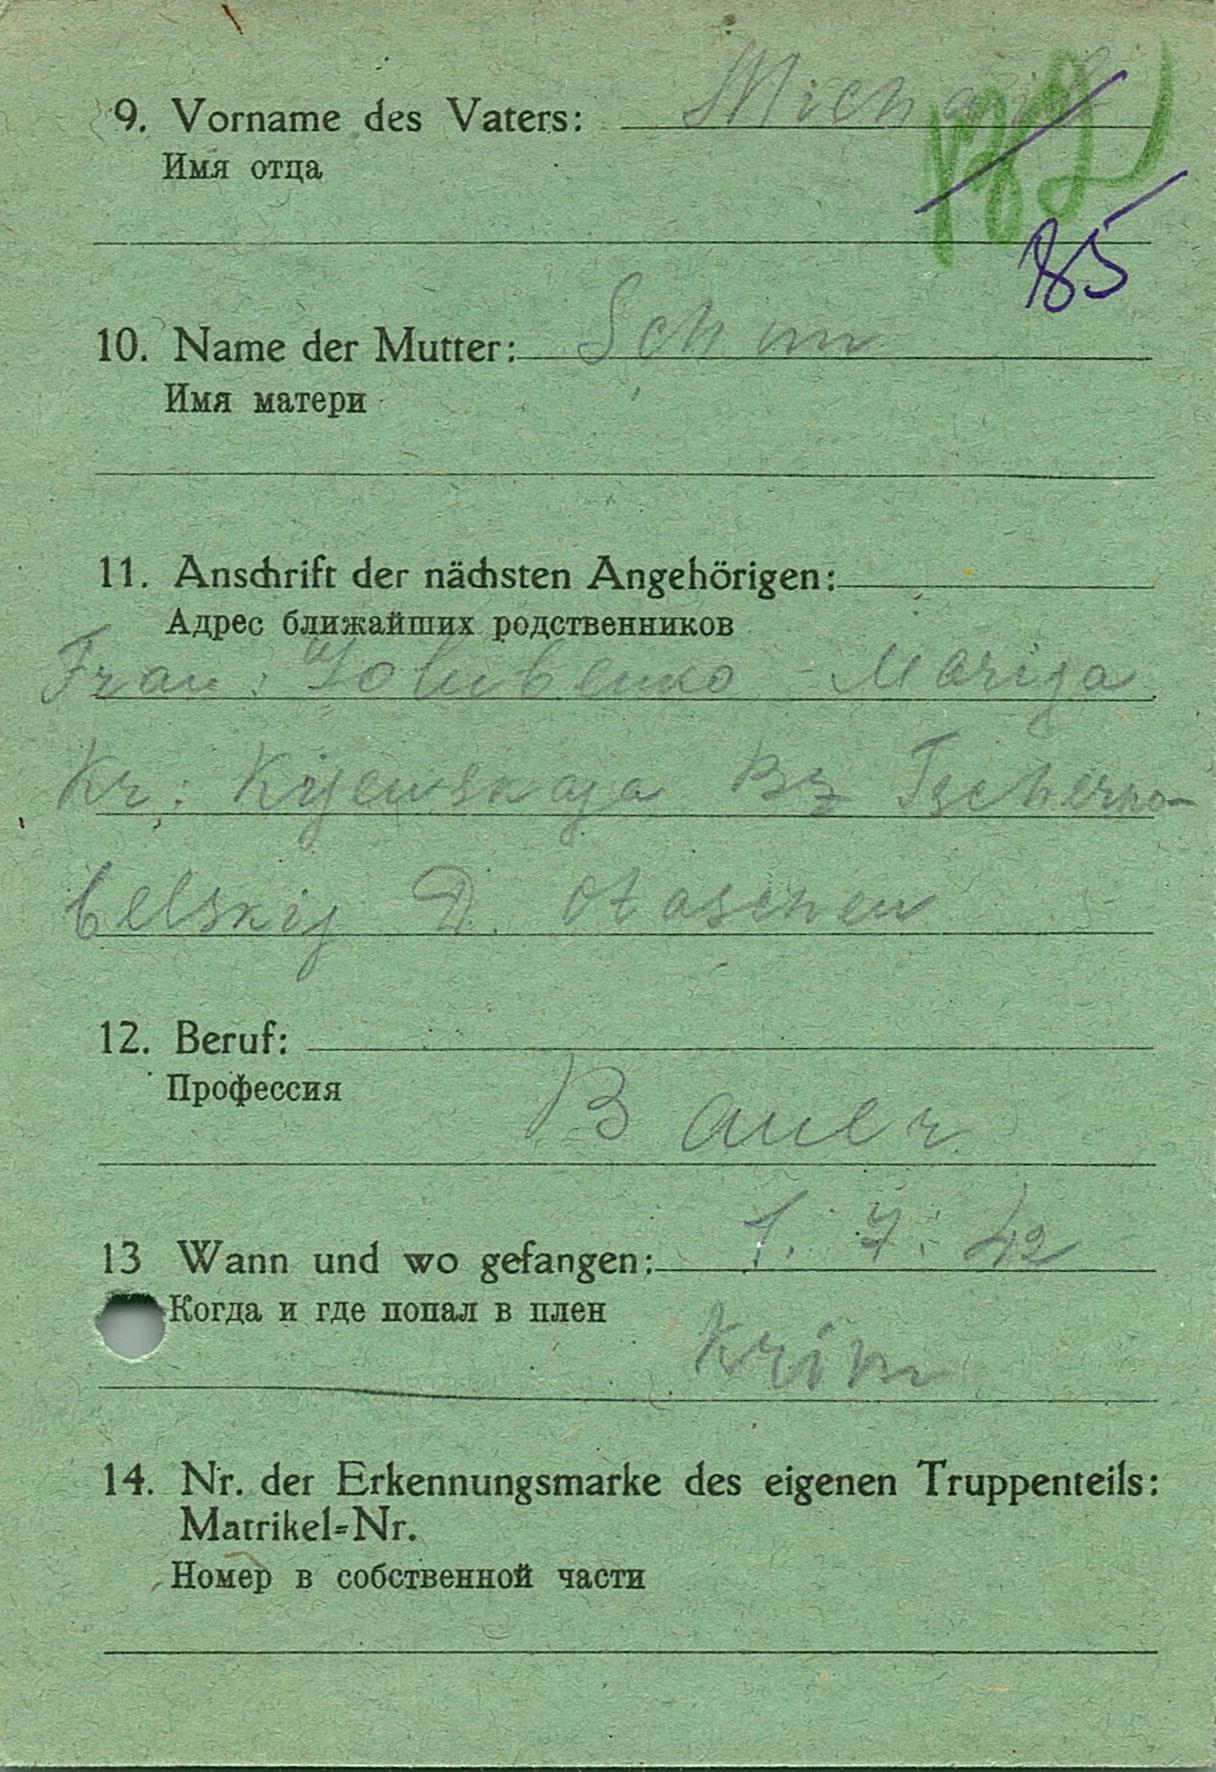 9. Vorname des Vaters: Michail
Имя отца
182
85
10. Name der Mutter: Schum
Имя матери
11. Anschrift der nächsten Angehörigen:
Адрес ближайших родственников
Frau: Golubenko - Marija
Kr: Kijewskaja Bz Tscherno-
belskij D. Otaschew
12. Beruf:
Профессия
Bauer
13 Wann und wo gefangen: 1. 7. 42
Когда и где попал в плен
Krim
14. Nr. der Erkennungsmarke des eigenen Truppenteils:
Matrikel=Nr.
Номер в собственной части